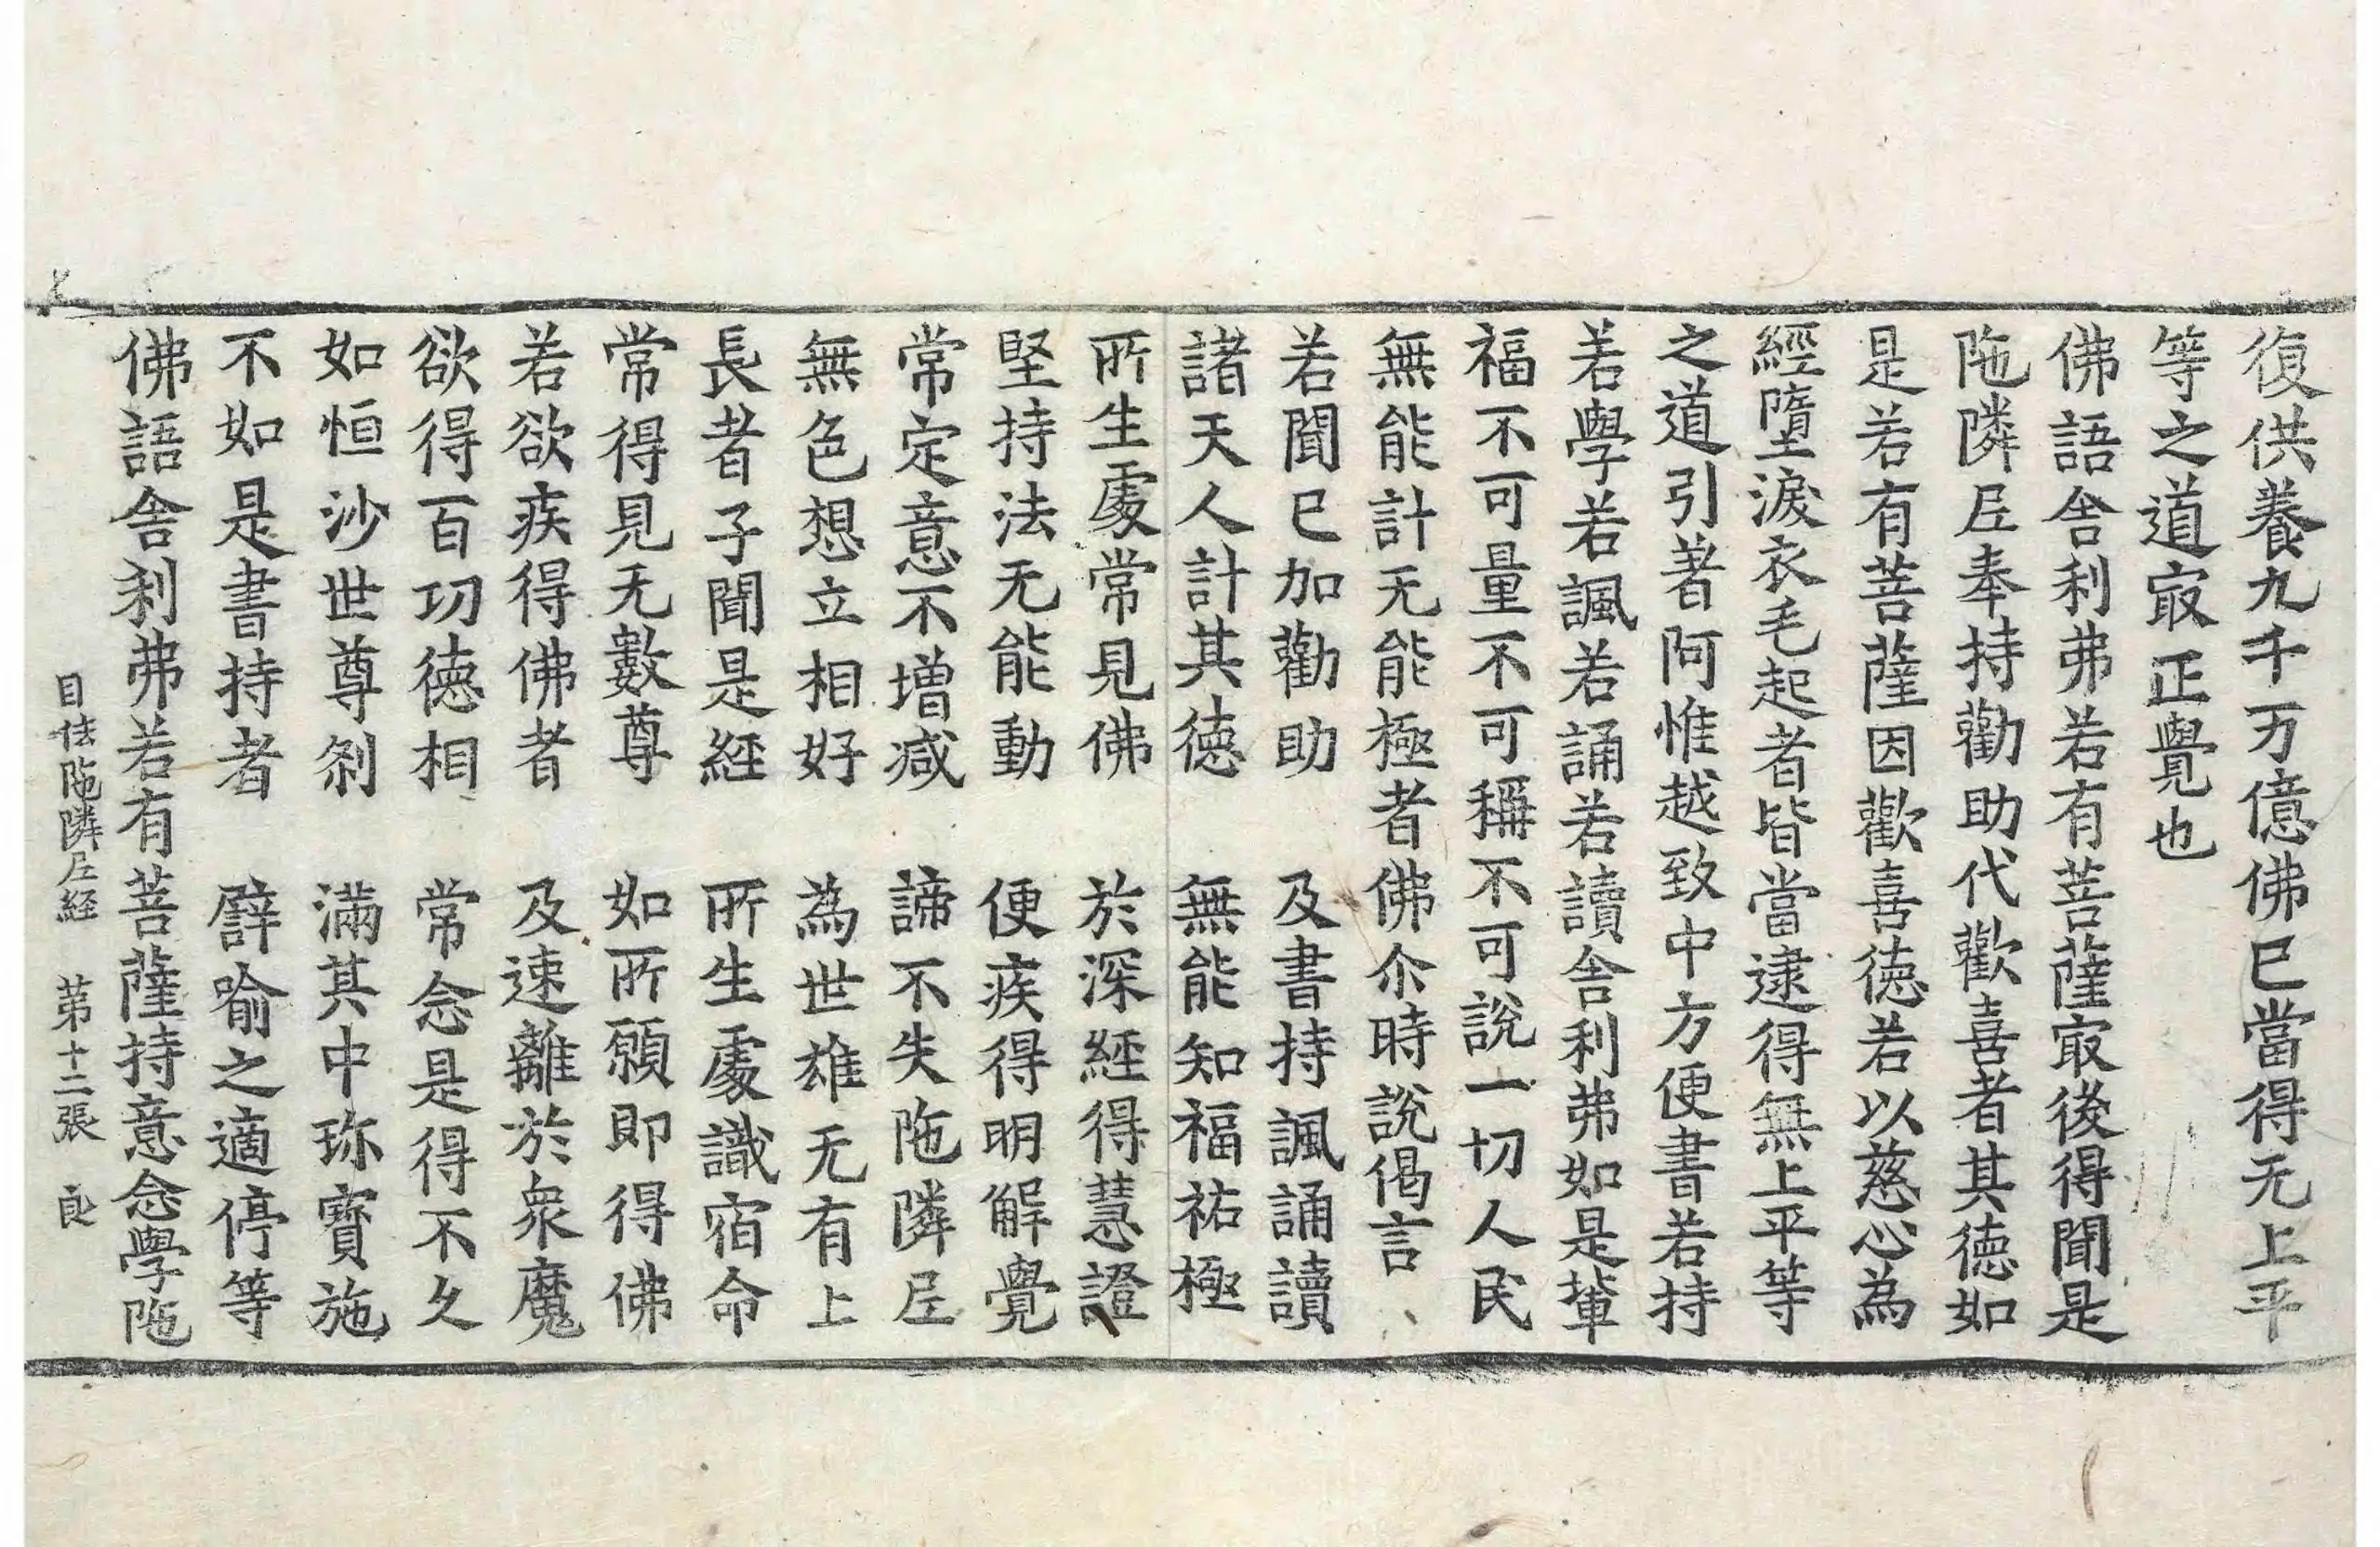 復供養九千万億佛已當得无上平
等之道㝡正覺也
佛語舍利弗若有菩薩㝡後得聞是
陁隣𡰱奉持勸助代歡喜者其德如
是若有菩薩因歡喜德若以慈心為
經墮淚衣毛起者皆當逮得無上平等
之道引著阿惟越致中方便書若持
若學若諷若誦若讀舍利弗如是軰
福不可量不可稱不可說一切人民
無能計无能極者佛尒時說偈言
若聞已加勸助　及書持諷誦讀
諸天人計其德　無能知福祐極
所生處常見佛　於深經得慧證
堅持法无能動　便疾得明解覺
常定意不增減　諦不失陁隣𡰱
無色想立相好　為世雄无有上
長者子聞是經　所生處識宿命
常得見无數尊　如所願即得佛
若欲疾得佛者　及速離於衆魔
欲得百功德相　常念是得不久
如恒沙世尊刹　滿其中珎寶施
不如是書持者　譬喻之適停等
佛語舍利弗若有菩薩持意念學陁
目佉陁隣𡰱経　第十二張　良